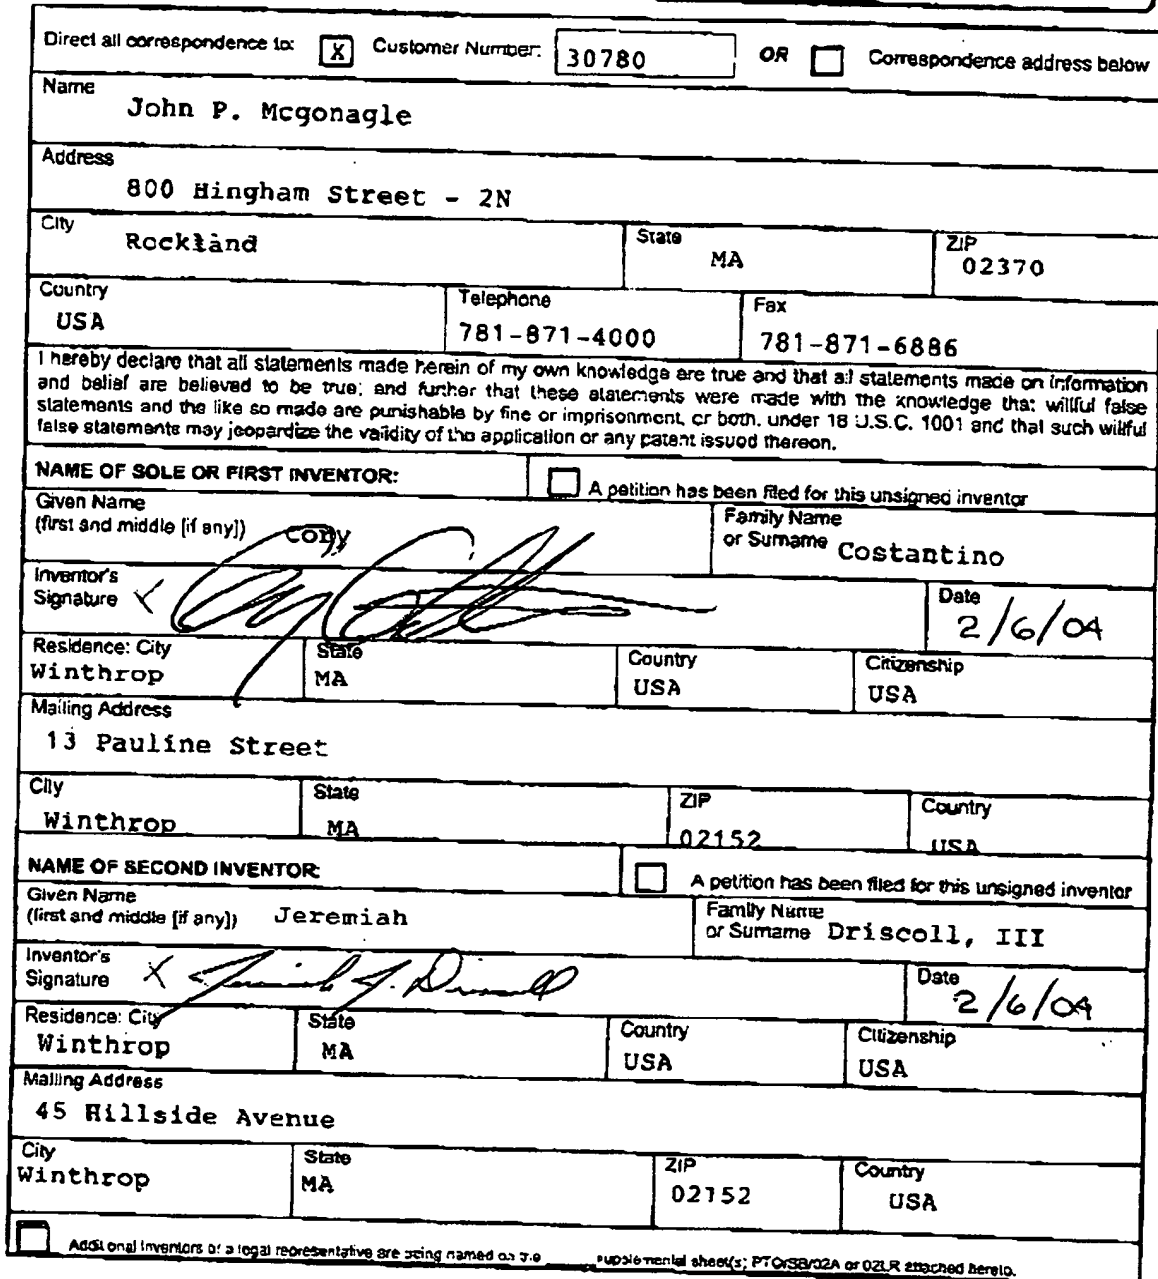 Direct all correspondence to: X Customer Number: 30780 OR Correspondence address below
Name
John P. Mcgonagle
Address
800 Hingham Street - 2N
City Rockland State MA ZIP 02370
Country USA Telephone 781-871-4000 Fax 781-871-6886
I hereby declare that all statements made herein of my own knowledge are true and that all statements made on information
and belief are believed to be true; and further that these statements were made with the knowledge that willful false
statements and the like so made are punishable by fine or imprisonment, or both, under 18 U.S.C. 1001 and that such willful
false statements may jeopardize the validity of the application or any patent issued thereon.
NAME OF SOLE OR FIRST INVENTOR: A petition has been filed for this unsigned inventor
Given Name
(first and middle [if any]) Cory
Family Name
or Surname Costantino
Inventor's
Signature
Date 2/6/04
Residence: City Winthrop State MA Country USA Citizenship USA
Mailing Address
13 Pauline Street
City Winthrop State MA ZIP 02152 Country USA
NAME OF SECOND INVENTOR: A petition has been filed for this unsigned inventor
Given Name
(first and middle [if any]) Jeremiah
Family Name
or Surname Driscoll, III
Inventor's
Signature X Jeremiah J. Driscoll
Date 2/6/04
Residence: City Winthrop State MA Country USA Citizenship USA
Mailing Address
45 Hillside Avenue
City Winthrop State MA ZIP 02152 Country USA
Additional inventors or a legal representative are being named on the supplemental sheet(s) PTO/SB/02A or 02LR attached hereto.